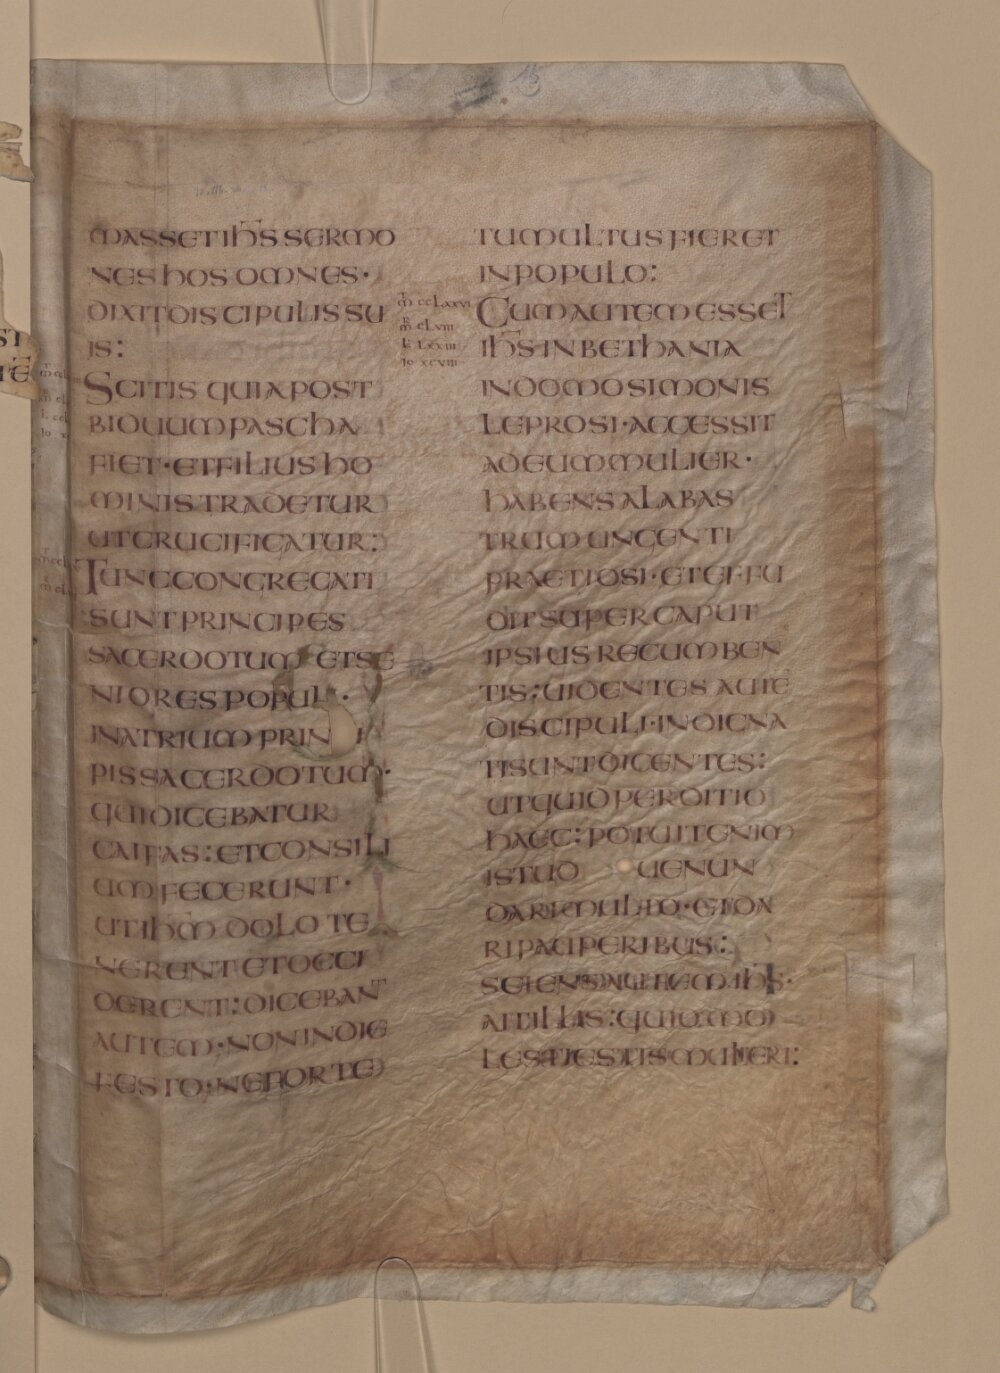 MASSET IHS SERMO
NES HOS OMNES·
DIXIT DISCIPULIS SU
IS:
SCITIS QUIA POST
BIDUUM PASCHA
FIET·ET FILIUS HO
MINIS TRADETUR
UT CRUCIFIGATUR:
TUNC CONGREGATI
SUNT PRINCIPES
SACERDOTUM ET SE
NIORES POPUL·
IN ATRIUM PRIN
PIS SACERDOTUM·
QUI DICEBATUR
CAIFAS: ET CONSILI
UM FECERUNT·
UT IHM DOLO TE
NERENT ET OCCI
DERENT: DICEBANT
AUTEM·NON IN DIE
FESTO·NE FORTE
M CCLXXVI
M CLVIII
L LXXIII
IO XCVIII
TUMULTUS FIERET
IN POPULO:
CUM AUTEM ESSET
IHS IN BETHANIA
IN DOMO SIMONIS
LEPROSI·ACCESSIT
AD EUM MULIER·
HABENS ALABAS
TRUM UNGENTI
PRAETIOSI·ET EFFU
DIT SUPER CAPUT
IPSIUS RECUMBEN
TIS: UIDENTES AUTE
DISCIPULI·INDIGNA
TI SUNT DICENTES:
UT QUID PERDITIO
HAEC: POTUIT ENIM
ISTUD UENUN
DARI MULTO·ET DA
RI PAUPERIBUS:
SCIENS AUTEM IHS·
AIT ILLIS: QUID MO
LESTI ESTIS MULIERI: